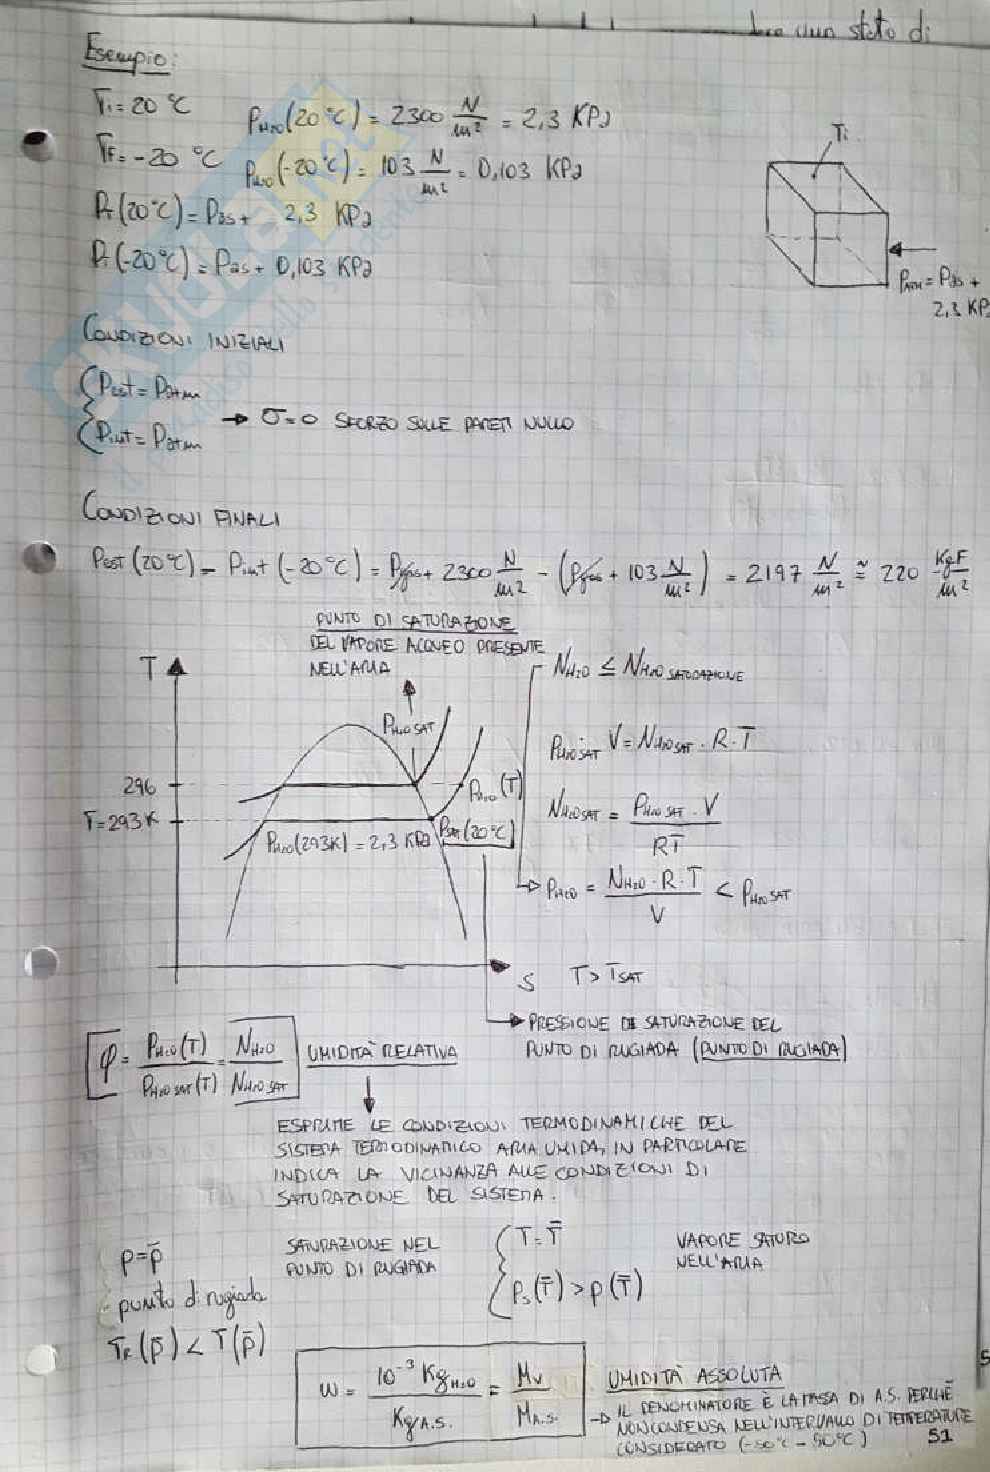 uno stato di
Esempio:
Ti = 20 °C   PH2O(20°C) = 2300 N/m² = 2,3 KPa
TF = -20 °C   PH2O(-20°C) = 103 N/m² = 0,103 KPa
PT(20°C) = Pas + 2,3 KPa
PT(-20°C) = Pas + 0,103 KPa
Ti
PATM = Pas +
2,3 KPa
CONDIZIONI INIZIALI
Pest = Patm
Pint = Patm
→ σ = 0 SFORZO SULLE PARETI NULLO
CONDIZIONI FINALI
Pest (20°C) - Pint (-20°C) = Pas + 2300 N/m² - (Pas + 103 N/m²) = 2197 N/m² ≅ 220 KgF/m²
PUNTO DI SATURAZIONE
DEL VAPORE ACQUEO PRESENTE
NELL'ARIA
T
PH2O SAT
296
PH2O(T)
T̄ = 293K
PSAT(20°C)
PH2O(293K) = 2,3 KPa
S
NH2O ≤ NH2O SATURAZIONE
PH2O SAT V = NH2O SAT · R · T̄
NH2O SAT = PH2O SAT · V / RT̄
→ PH2O = NH2O · R · T / V < PH2O SAT
T > TSAT
→ PRESSIONE DI SATURAZIONE DEL
PUNTO DI RUGIADA (PUNTO DI RUGIADA)
φ = PH2O(T) / PH2O SAT(T) = NH2O / NH2O SAT   UMIDITÀ RELATIVA
ESPRIME LE CONDIZIONI TERMODINAMICHE DEL
SISTEMA TERMODINAMICO ARIA UMIDA, IN PARTICOLARE
INDICA LA VICINANZA ALLE CONDIZIONI DI
SATURAZIONE DEL SISTEMA.
p = p̄
punto di rugiada
TR(p̄) < T(p̄)
SATURAZIONE NEL
PUNTO DI RUGIADA
T = T̄
Ps(T̄) > p(T̄)
VAPORE SATURO
NELL'ARIA
ω = 10⁻³ KgH2O / KgA.S. = MV / MA.S.
UMIDITÀ ASSOLUTA
→ IL DENOMINATORE È LA MASSA DI A.S. PERCHÉ
NON CONDENSA NELL'INTERVALLO DI TEMPERATURE
CONSIDERATO (-50°C - 50°C)
51